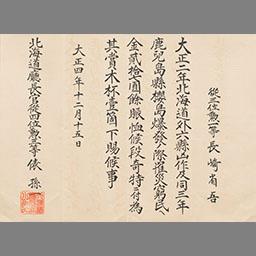 從三位勲一等長崎省吾
大正二年北海道外六縣凶作及同三年
鹿兒島縣櫻島爆發ノ際罹災窮民ヘ
金貳拾圓餘賑恤候段奇特ニ付爲
其賞木杯壹箇下賜候事
大正四年十二月十五日
北海道廳長官從四位勲三等俵孫一